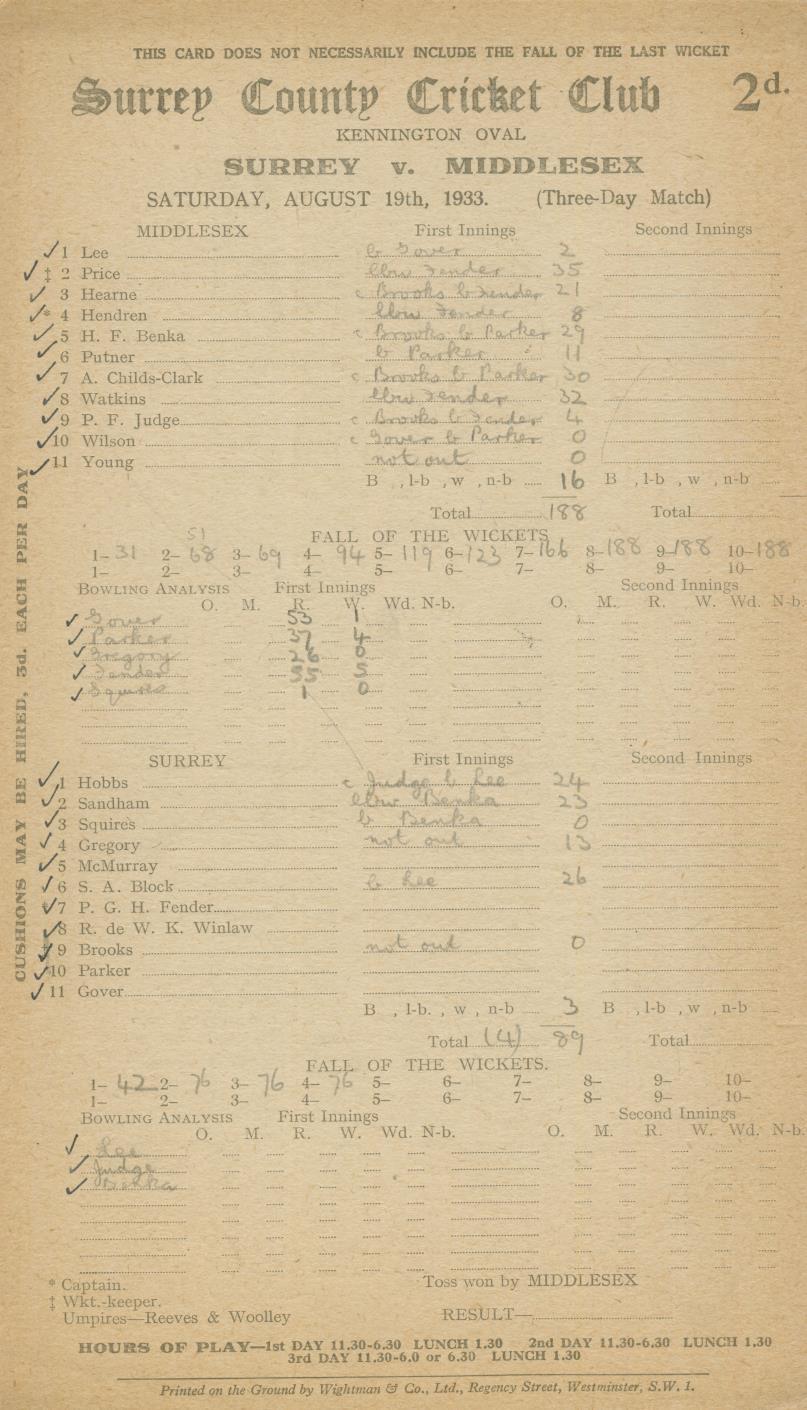 THIS CARD DOES NOT NECESSARILY INCLUDE THE FALL OF THE LAST WICKET
Surrey County Cricket Club 2d.
KENNINGTON OVAL
SURREY v. MIDDLESEX
SATURDAY, AUGUST 19th, 1933. (Three-Day Match)
MIDDLESEX First Innings Second Innings
✓ 1 Lee b Gover 2
✓ ‡ 2 Price lbw Fender 35
✓ 3 Hearne c Brooks b Fender 21
✓ * 4 Hendren lbw Fender 8
✓ 5 H. F. Benka c Brooks b Parker 29
✓ 6 Putner b Parker 11
✓ 7 A. Childs-Clark c Brooks b Parker 30
✓ 8 Watkins lbw Fender 32
✓ 9 P. F. Judge c Brooks b Fender 4
✓ 10 Wilson c Gover b Parker 0
✓ 11 Young not out 0
B , l-b , w , n-b 16 B , l-b , w , n-b
Total 188 Total
51
FALL OF THE WICKETS
1– 31 2– 68 3– 69 4– 94 5– 119 6– 123 7– 166 8– 188 9– 188 10– 188
1– 2– 3– 4– 5– 6– 7– 8– 9– 10–
BOWLING ANALYSIS First Innings Second Innings
O. M. R. W. Wd. N-b. O. M. R. W. Wd. N-b.
✓ Gover 53 1
✓ Parker 37 4
✓ Gregory 26 0
✓ Fender 55 5
✓ Squires 1 0
SURREY First Innings Second Innings
✓ 1 Hobbs c Judge b Lee 24
✓ 2 Sandham lbw Benka 23
✓ 3 Squires b Benka 0
✓ 4 Gregory not out 13
✓ 5 McMurray
✓ 6 S. A. Block b Lee 26
✓ 7 P. G. H. Fender
✓ 8 R. de W. K. Winlaw
✓ ‡ 9 Brooks not out 0
✓ 10 Parker
✓ 11 Gover
B , l-b. , w , n-b 3 B , l-b , w , n-b
Total (4) 89 Total
FALL OF THE WICKETS.
1– 42 2– 76 3– 76 4– 76 5– 6– 7– 8– 9– 10–
1– 2– 3– 4– 5– 6– 7– 8– 9– 10–
BOWLING ANALYSIS First Innings Second Innings
O. M. R. W. Wd. N-b. O. M. R. W. Wd. N-b.
✓ Lee
✓ Judge
✓ Benka
* Captain. Toss won by MIDDLESEX
‡ Wkt.-keeper.
Umpires—Reeves & Woolley RESULT—
HOURS OF PLAY—1st DAY 11.30-6.30 LUNCH 1.30 2nd DAY 11.30-6.30 LUNCH 1.30
3rd DAY 11.30-6.0 or 6.30 LUNCH 1.30
Printed on the Ground by Wightman & Co., Ltd., Regency Street, Westminster, S.W. 1.
CUSHIONS MAY BE HIRED, 3d. EACH PER DAY